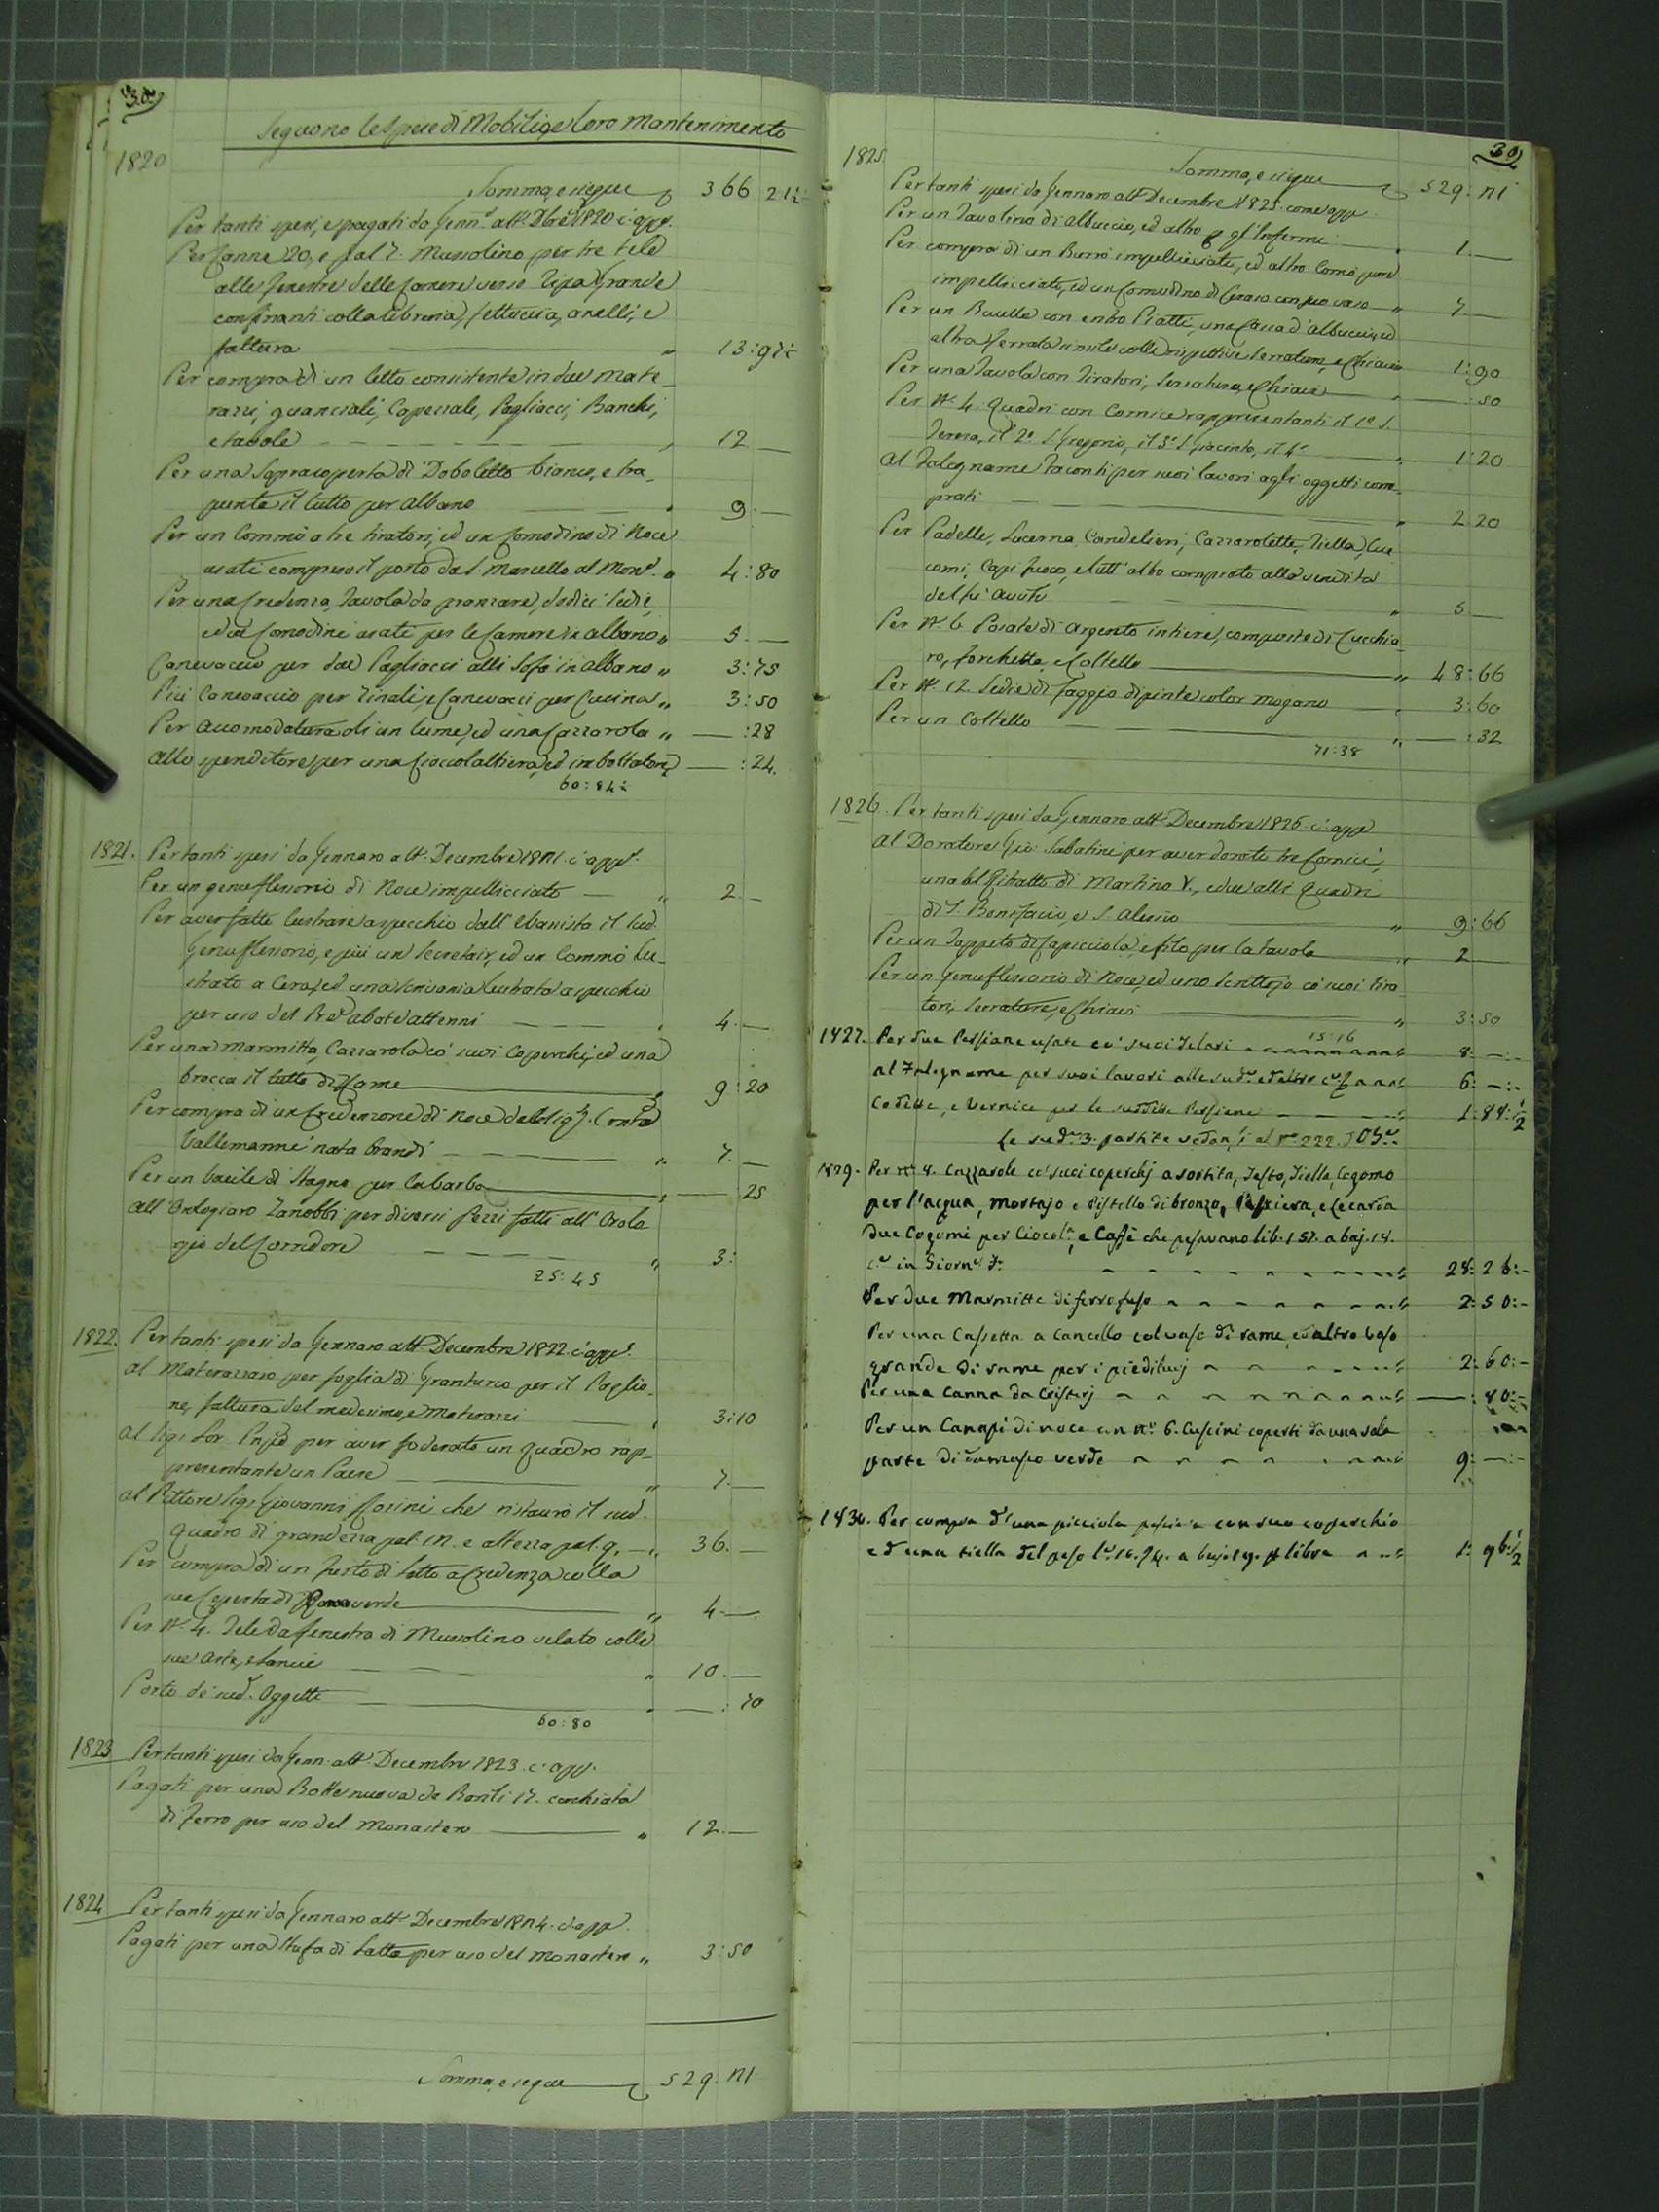 30
Seguono le spese di Mobilia, e loro Mantenimento
1820
Somma, e segue 366 21½
Per tanti spesi, e pagati da Genn.º a tt.º Dbre 1820 c. app.
Per Canne 20, e pal. 7. Mussolino per tre tele
alle finestre delle Camere verso Ripa Grande
confinanti colla libreria, fettuccia, anelli, e
fattura " 13:97½
Per compra di un letto consistente in due mate-
razzi, guanciali, Capezzale, Pagliacci, Banchi,
e tavole " 12. —
Per una Sopracoperta di Dobletto bianco, e tra-
punta il tutto per Albano " 9. —
Per un Commò a tre tiratori, ed un Comodino di Noce
usati compreso il porto da S. Marcello al Mon.º " 4:80
Per una Credenza, Tavola da pranzare, dodici sedie,
ed un Comodini usati per le Camere in Albano " 5. —
Canevaccio per due Pagliacci alli Sofà in Albano " 3:75
Più Canevaccio per Zinali, e Canevacci per Cucina " 3:50
Per accomodatura di un lume, ed una Cazzarola " — :28
Allo spenditore per una Cioccolattiera, ed imbottatore — :24.
60:84½
1821. Per tanti spesi da Gennaro a tt.º Decembre 1821. c. app.
Per un genuflessorio di Noce impellicciato — " 2. —
Per aver fatto lustrare a specchio dall' Ebanista il sud.
Genuflessorio, e più un Secretair, ed un Commò lu-
strato a Cera, ed una scrivania lustrata a specchio
per uso del Rño Abate Altenni " 4. —
Per una Marmitta, Cazzarola co' suoi Coperchi, ed una
brocca il tutto di Rame 9:20
Per compra di un Credenzone di Noce dalla Sig.ª Contª
Vallemanni nata Brandi " 7. —
Per un bacile di Stagno per la barba " — 25
All' Orologiaro Zanobbi per diversi Pezzi fatti all' Orolo
gio del Corridore " 3:
25:45
1822. Per tanti spesi da Gennaro a tt.º Decembre 1822. c. app.
Al Materazzaro per foglia di Granturco per il Paglio-
ne, fattura del medesimo, e Materazzi " 3:10
Al Sig. per aver foderato un quadro rap-
presentante un Paese " 7. —
Al Pittore Sig. Giovanni Rosini che ristaurò il sud.
Quadro di grandezza pal. 12. e altezza pal. 9. — " 36. —
Per compra di un fusto di letto a Credenza colla
sua Coperta di verde " 4. —
Per N. 4. Tele da finestra di Mussolino velato colle
sue Aste, e lancie " 10. —
Porto de' sud. Oggetti " — : 70
60:80
1823 Per tanti spesi da Genn. a tt.º Decembre 1823. c. app.
Pagati per una Botte nuova da Barili 17. cerchiata
di ferro per uso del Monastero " 12. —
1824 Per tanti spesi da Gennaro a tt.º Decembre 1824. c. app.
Pagati per una Stufa di Latta per uso del Monastero " 3:50
Somma, e segue 529. 21
30
1825. Somma, e segue 529: 21
Per tanti spesi da Gennaro a tt.º Decembre 1825. come app.
Per un Tavolino di Albuccio, ed altro p. gl' Infermi " 1. —
Per compra di un Burrò impellicciato, ed altro Comò pure
impellicciato, ed un Comodino di Ceraso con suo vaso " 7. —
Per un Baulle con entro Piatti, una Cassa d'albuccio, ed
altra ferrata simile colle rispettive serrature, e Chiavi 1:90
Per una Tavola con Tiratori, Serratura, e Chiave " — :50
Per N. 4. Quadri con Cornice rappresentanti il 1º S.
Teresa, il 2º S. Gregorio, il 3º S. Giacinto, il 4º " 1:20
Al Falegname Taconti per suoi lavori agli oggetti com-
prati " 2:20
Per Padelle, Lucerna, Candelieri, Cazzarolette, Tiella, Cuc
comi, Capi fuoco, e tutt' altro comprato alla vendita
del fù Avoto " 5 —
Per N. 6. Posate di Argento intiere, composte di Cucchia-
ro, forchetta, e Coltello " 48:66
Per N. 12. Sedie di Faggio dipinte color mogano " 3:60
Per un Coltello " — :32
71:38
1826. Per tanti spesi da Gennaro a tt.º Decembre 1826. c. app.
Al Doratore Gio: Sabatini per aver dorato tre Cornici,
una al Ritratto di Martino V., e due alli Quadri
di S. Bonifacio, e S. Alessio " 9:66
Per un Tappeto di Capicciola, e filo per la tavola " 2 —
Per un Genuflessorio di Noce, ed uno Scrittojo co' suoi tira-
tori, Serrature, e Chiavi " 3:50
15:16
1827. Per due Persiane usate co' suoi Telari " 8: — : —
Al Falegname per suoi lavori alle sud.e ed altro " 6: — : —
Codette, e vernice per le suddette Persiane " 1:88:½
Le sud.e 3. partite vedansi al N.º 222.
1829. Per N.º 8. Cazzarole co' suoi coperchj a sortita, Testo, Tiella, Cogomo
per l'acqua, Mortajo e Pistello di bronzo, Pesciera, e Leccarda
due Cogomi per Ciocol.ª, e Caffè che pesavano lib. 157. a baj. 18.
c.e in Giorn.e 7.º " 28:26:-
Per due Marmitte di ferro fuso " 2:50:-
Per una Cassetta a Cancello col vaso di rame, ed altro vaso
grande di rame per i pediluvj " 2:60:-
Per una Canna da Cristerj " — :80:-
Per un Canapè di noce con N.º 6. Cuscini coperti da una sola
parte di damasco verde " 9: — : —
1830. Per compra d'una picciola pesciera con suo coperchio
ed una tiella del peso l.e 10. a baj. 19. p. libra " 1: 96:½